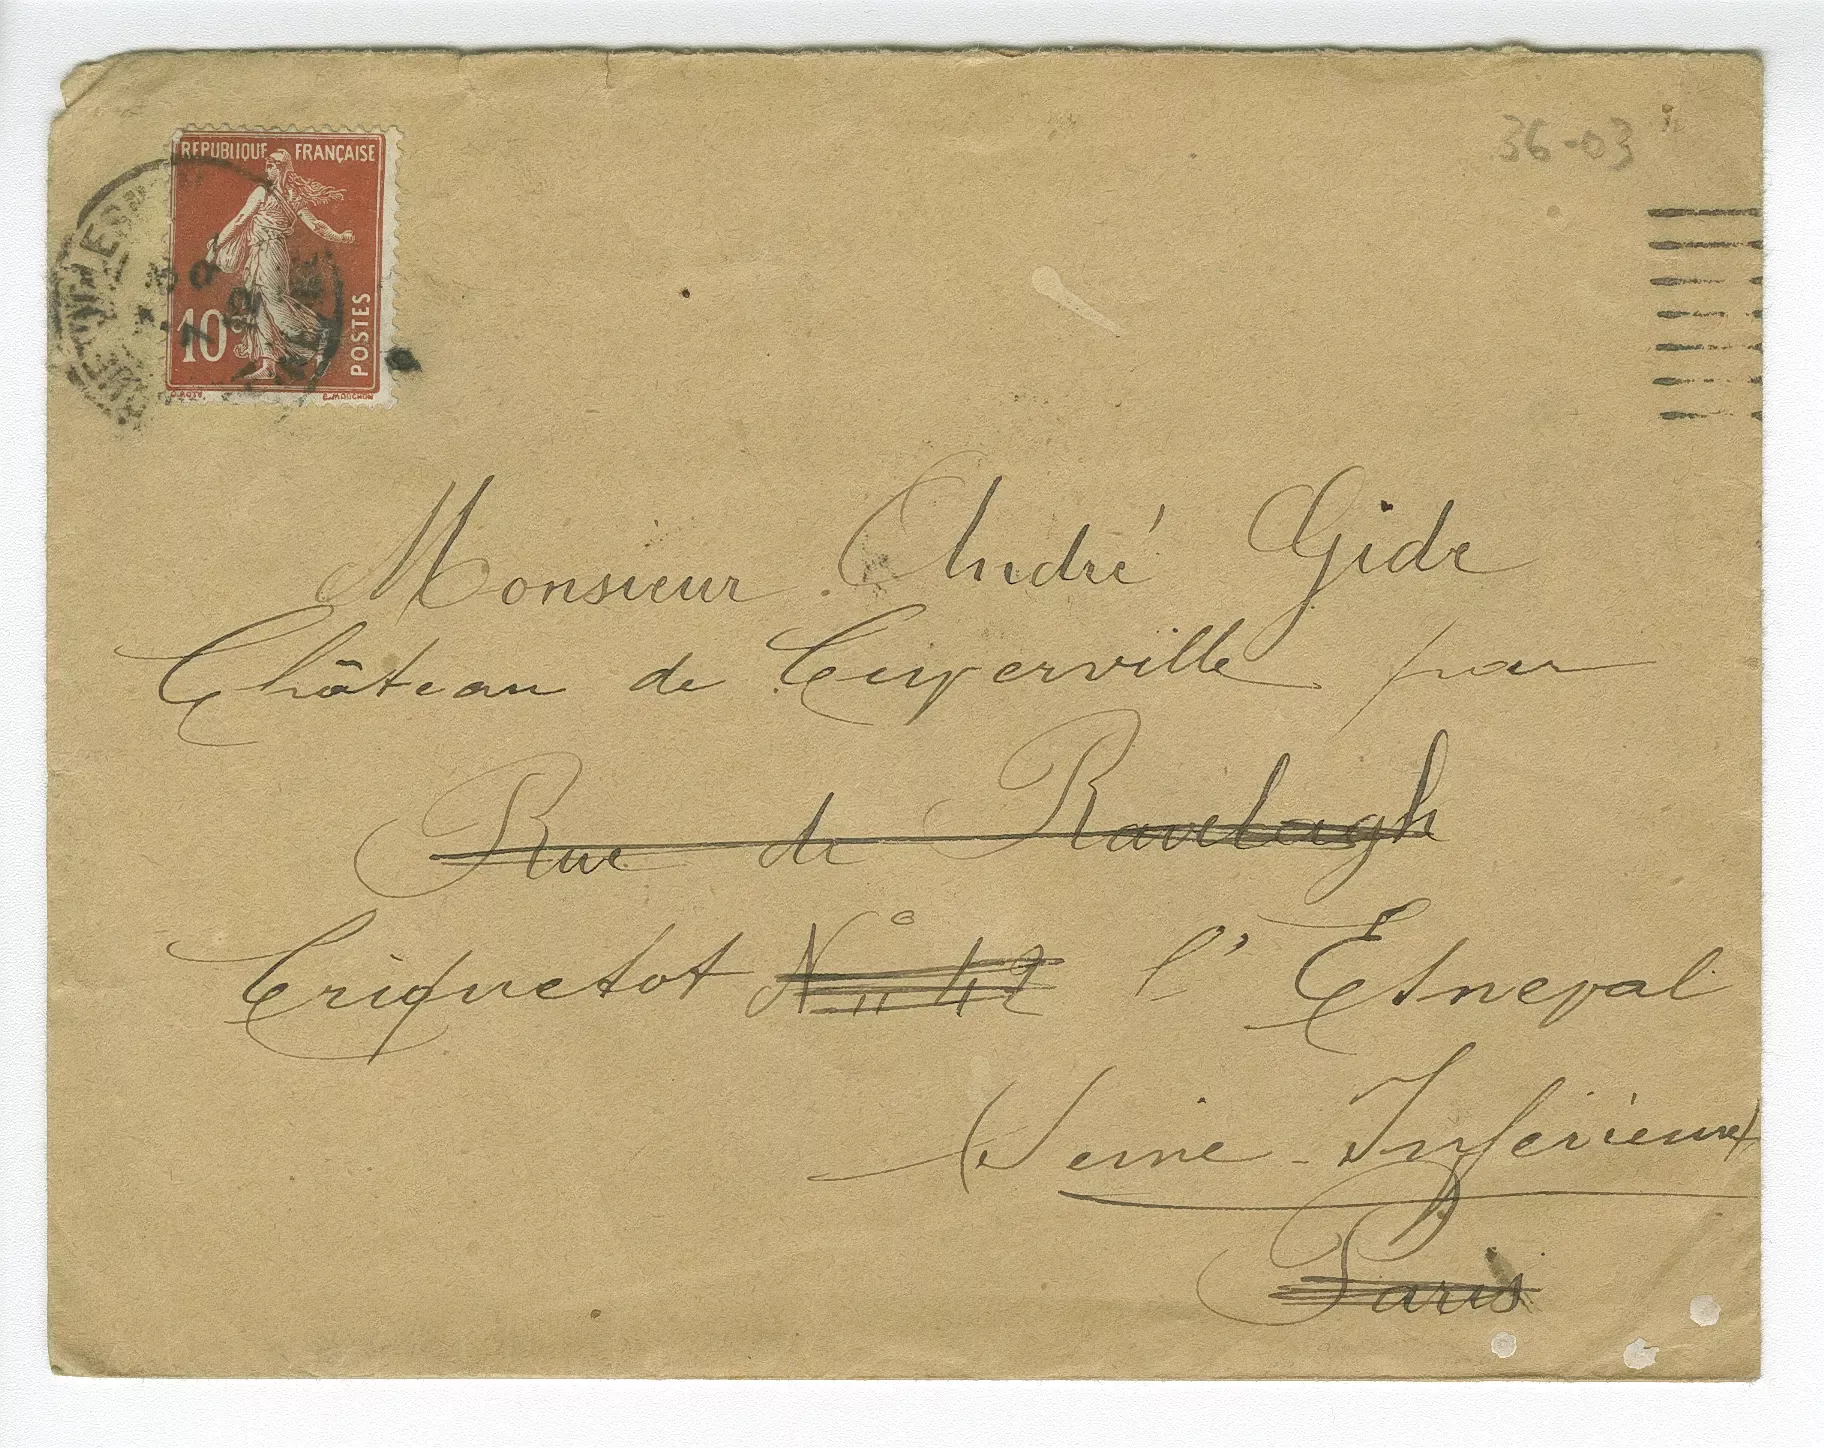 36-03
REPUBLIQUE FRANÇAISE
10
POSTES
E. MOUCHON
Monsieur André Gide
Château de Cuverville par
Rue de Ranelagh
Criquetot N° 42 l'Esneval
(Seine-Inférieure)
Paris